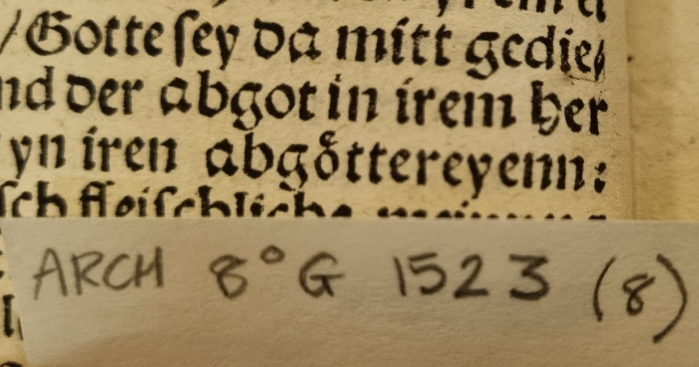 /Gotte ſey da mitt gedie⸗
nd der abgot in irem her
yn iren abgoͤttereyenn:
ſch fleiſchliche
ARCH 8° G 1523 (8)